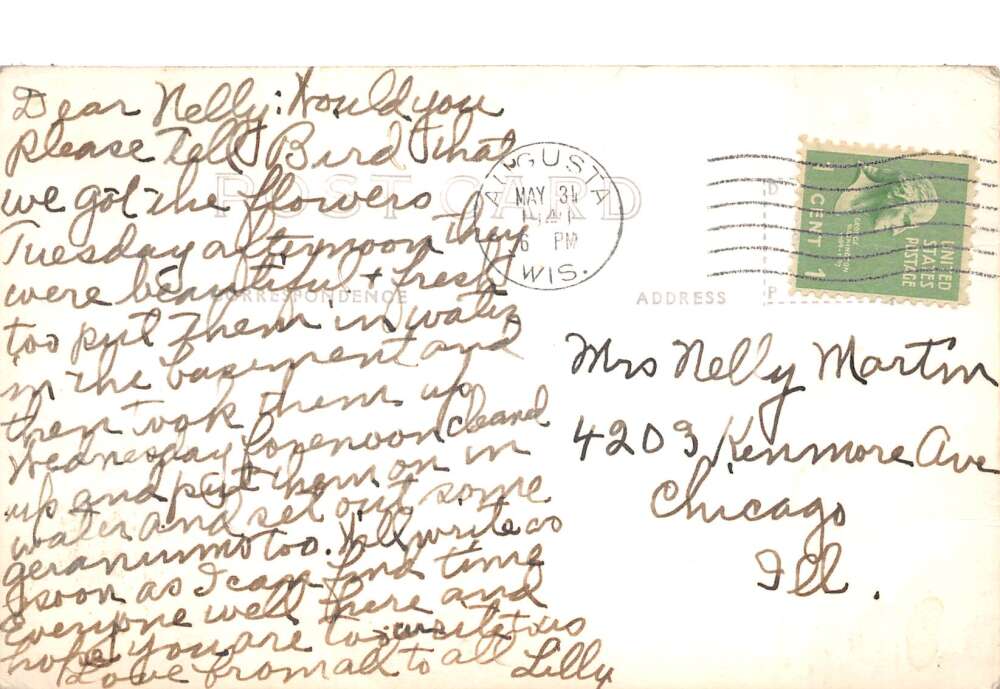 Dear Nelly: Would you
please tell Bird that
we got the flowers
Tuesday afternoon They
were beautiful + fresh
too put them in water
in the basement and
then took them up
Wednesday forenoon cleand
up and put them on in
water and set out some
geraniums too. Will write as
soon as I can find time
Everyone well there and
hope you are too write to us
Love from all to all Lilly
POST CARD
CORRESPONDENCE
ADDRESS
AUGUSTA
MAY 31
1941
6 PM
WIS.
1 CENT 1
GEORGE WASHINGTON
UNITED
STATES
POSTAGE
Mrs Nelly Martin
4203 Kenmore Ave
Chicago
Ill.